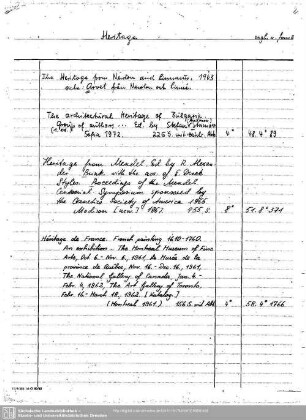 Heritage
The Heritage from Newton and Linnaeus. 1963
The architectural Heritage of Bulgaria.
Group of authors ... Ed. by Stefan
Sofia 1972. 225 S. 4° 48. 4° 89
Heritage from Mendel. Ed by R. Alexander
Brink with the ass. of E. Derek
Styles. Proceedings of the Mendel
Centennial Symposium sponsored by
the Genetics Society of America 1965
Madison 1967. 455 S. 8° 51. 8° 371
Héritage de France. French painting 1610-1760.
An exhibition. The Montreal Museum of Fine
Arts, Oct 6.- Nov. 6, 1961, Le Musée de la
province de Québec, Nov. 16.- Dec. 16, 1961,
The National Gallery of Canada, Jan. 4 -
Febr. 4, 1962, The Art Gallery of Toronto,
Febr. 16 - March 18, 1962. [Katalog]
(Montreal 1961.) 166 S. mit Abb. 4° 58. 4° 1766